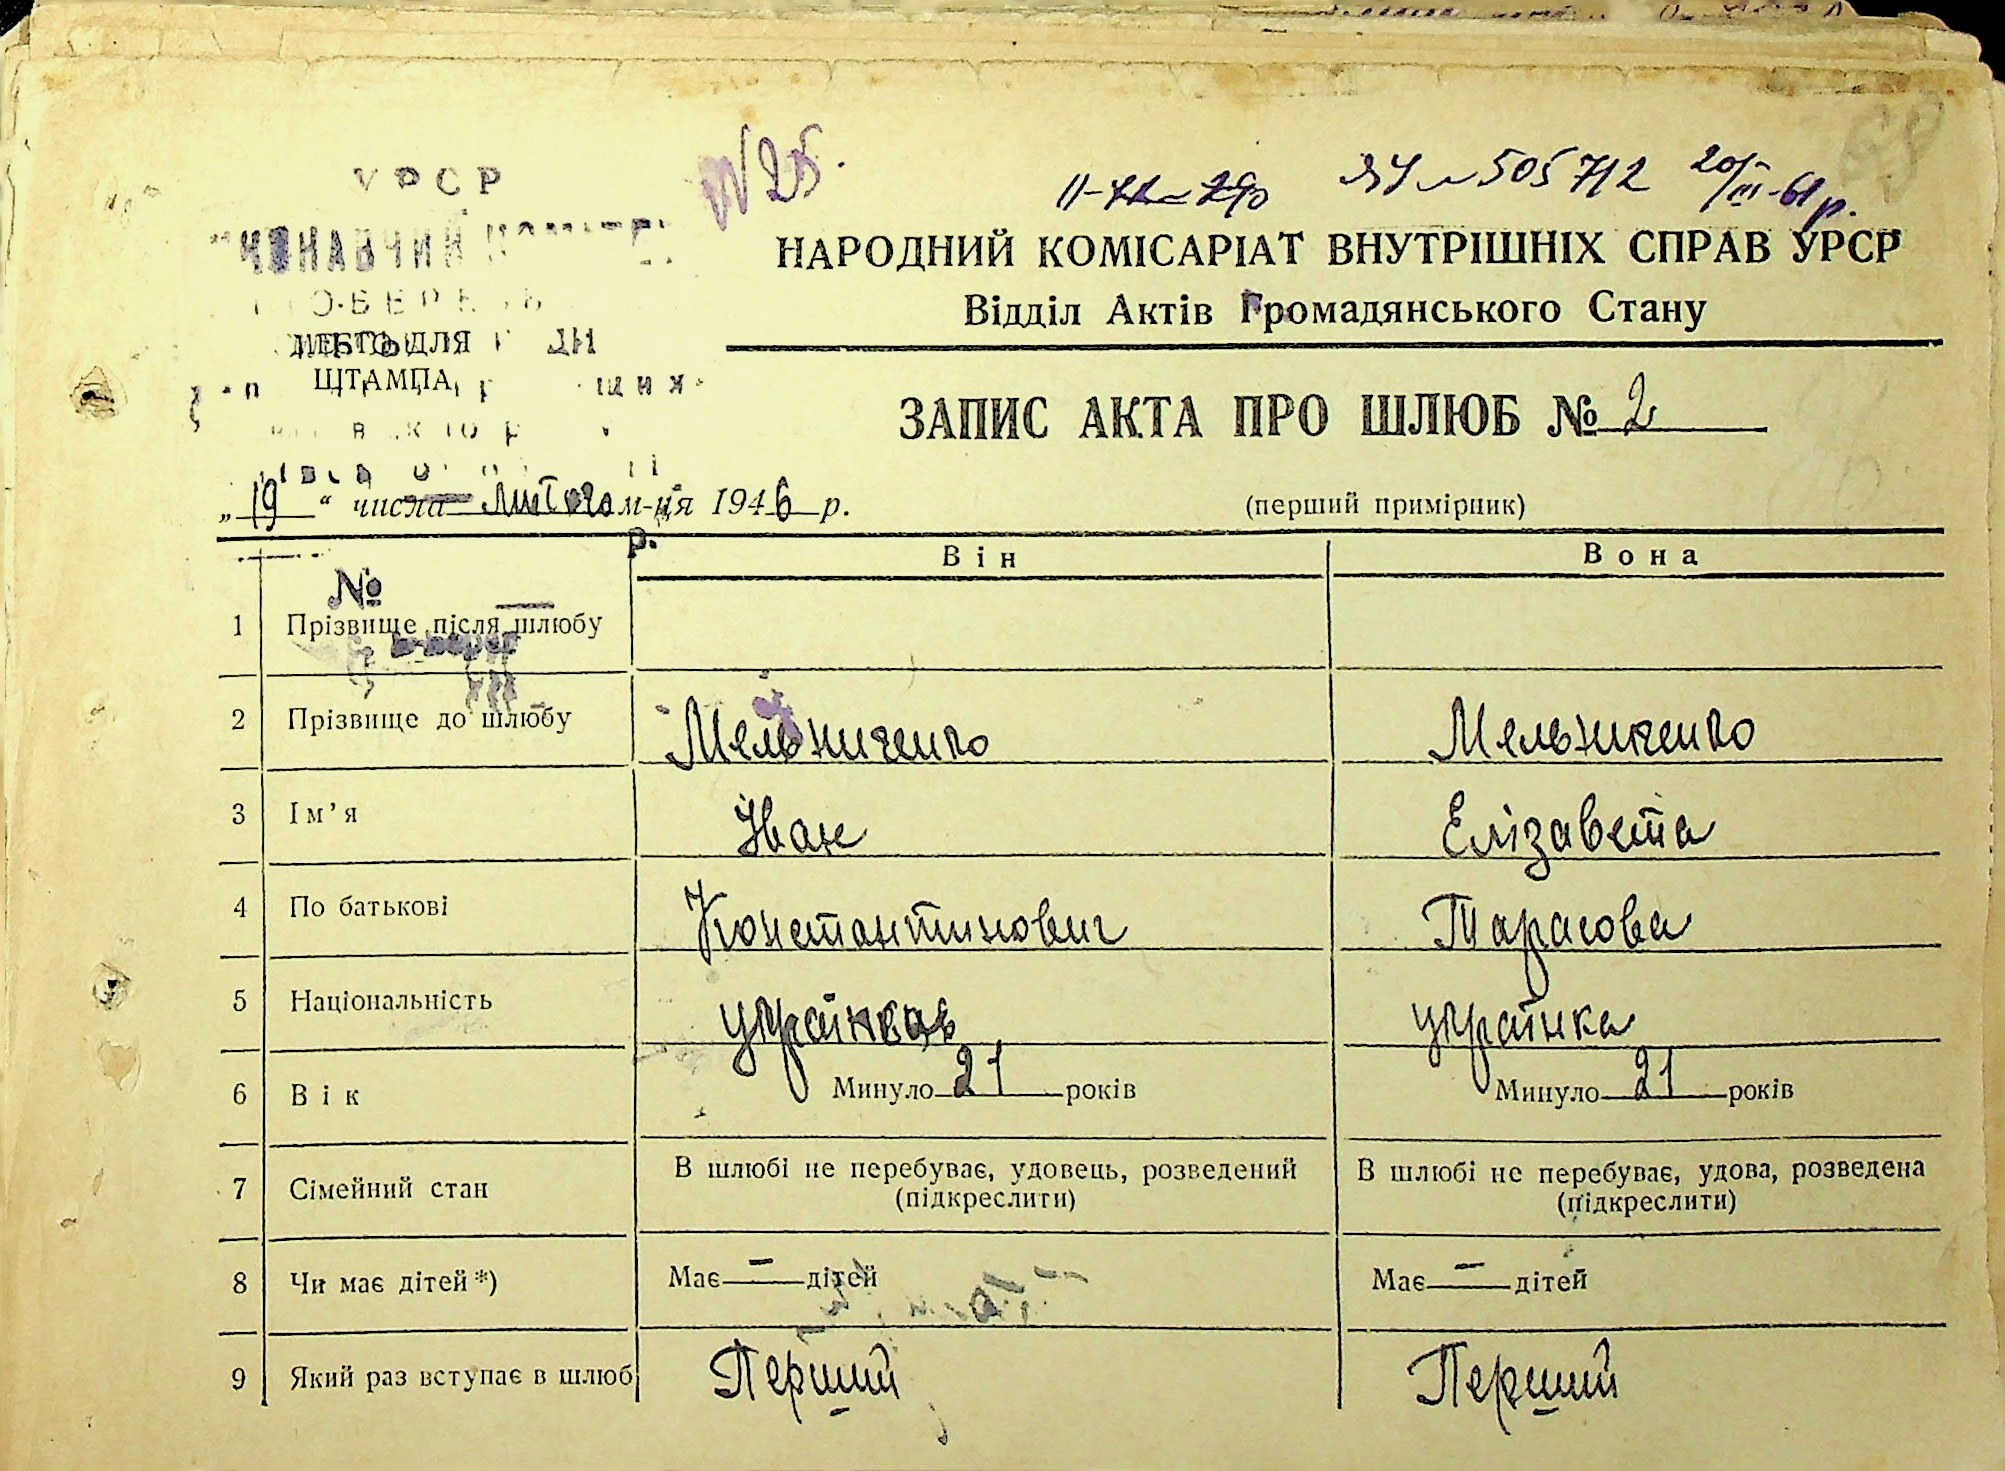 N 25.
ЯУ № 505712 20/III-61 р.
УРСР
НАРОДНИЙ КОМІСАРІАТ ВНУТРІШНІХ СПРАВ УРСР
Відділ Актів Громадянського Стану
МІСТО ДЛЯ
ШТАМПА
ЗАПИС АКТА ПРО ШЛЮБ № 2
„19“ числа Лютого м-ця 1946 р.
(перший примірник)
р.
Він Вона
№
1 Прізвище після шлюбу
2 Прізвище до шлюбу Мельниченко Мельниченко
3 Ім’я Іван Елізавета
4 По батькові Константинович Тарасовa
5 Національність українець українка
6 Вік Минуло 21 років Минуло 21 років
7 Сімейний стан В шлюбі не перебуває, удовець, розведений (підкреслити) В шлюбі не перебуває, удова, розведена (підкреслити)
8 Чи має дітей*) Має — дітей Має — дітей
9 Який раз вступає в шлюб Перший Перший